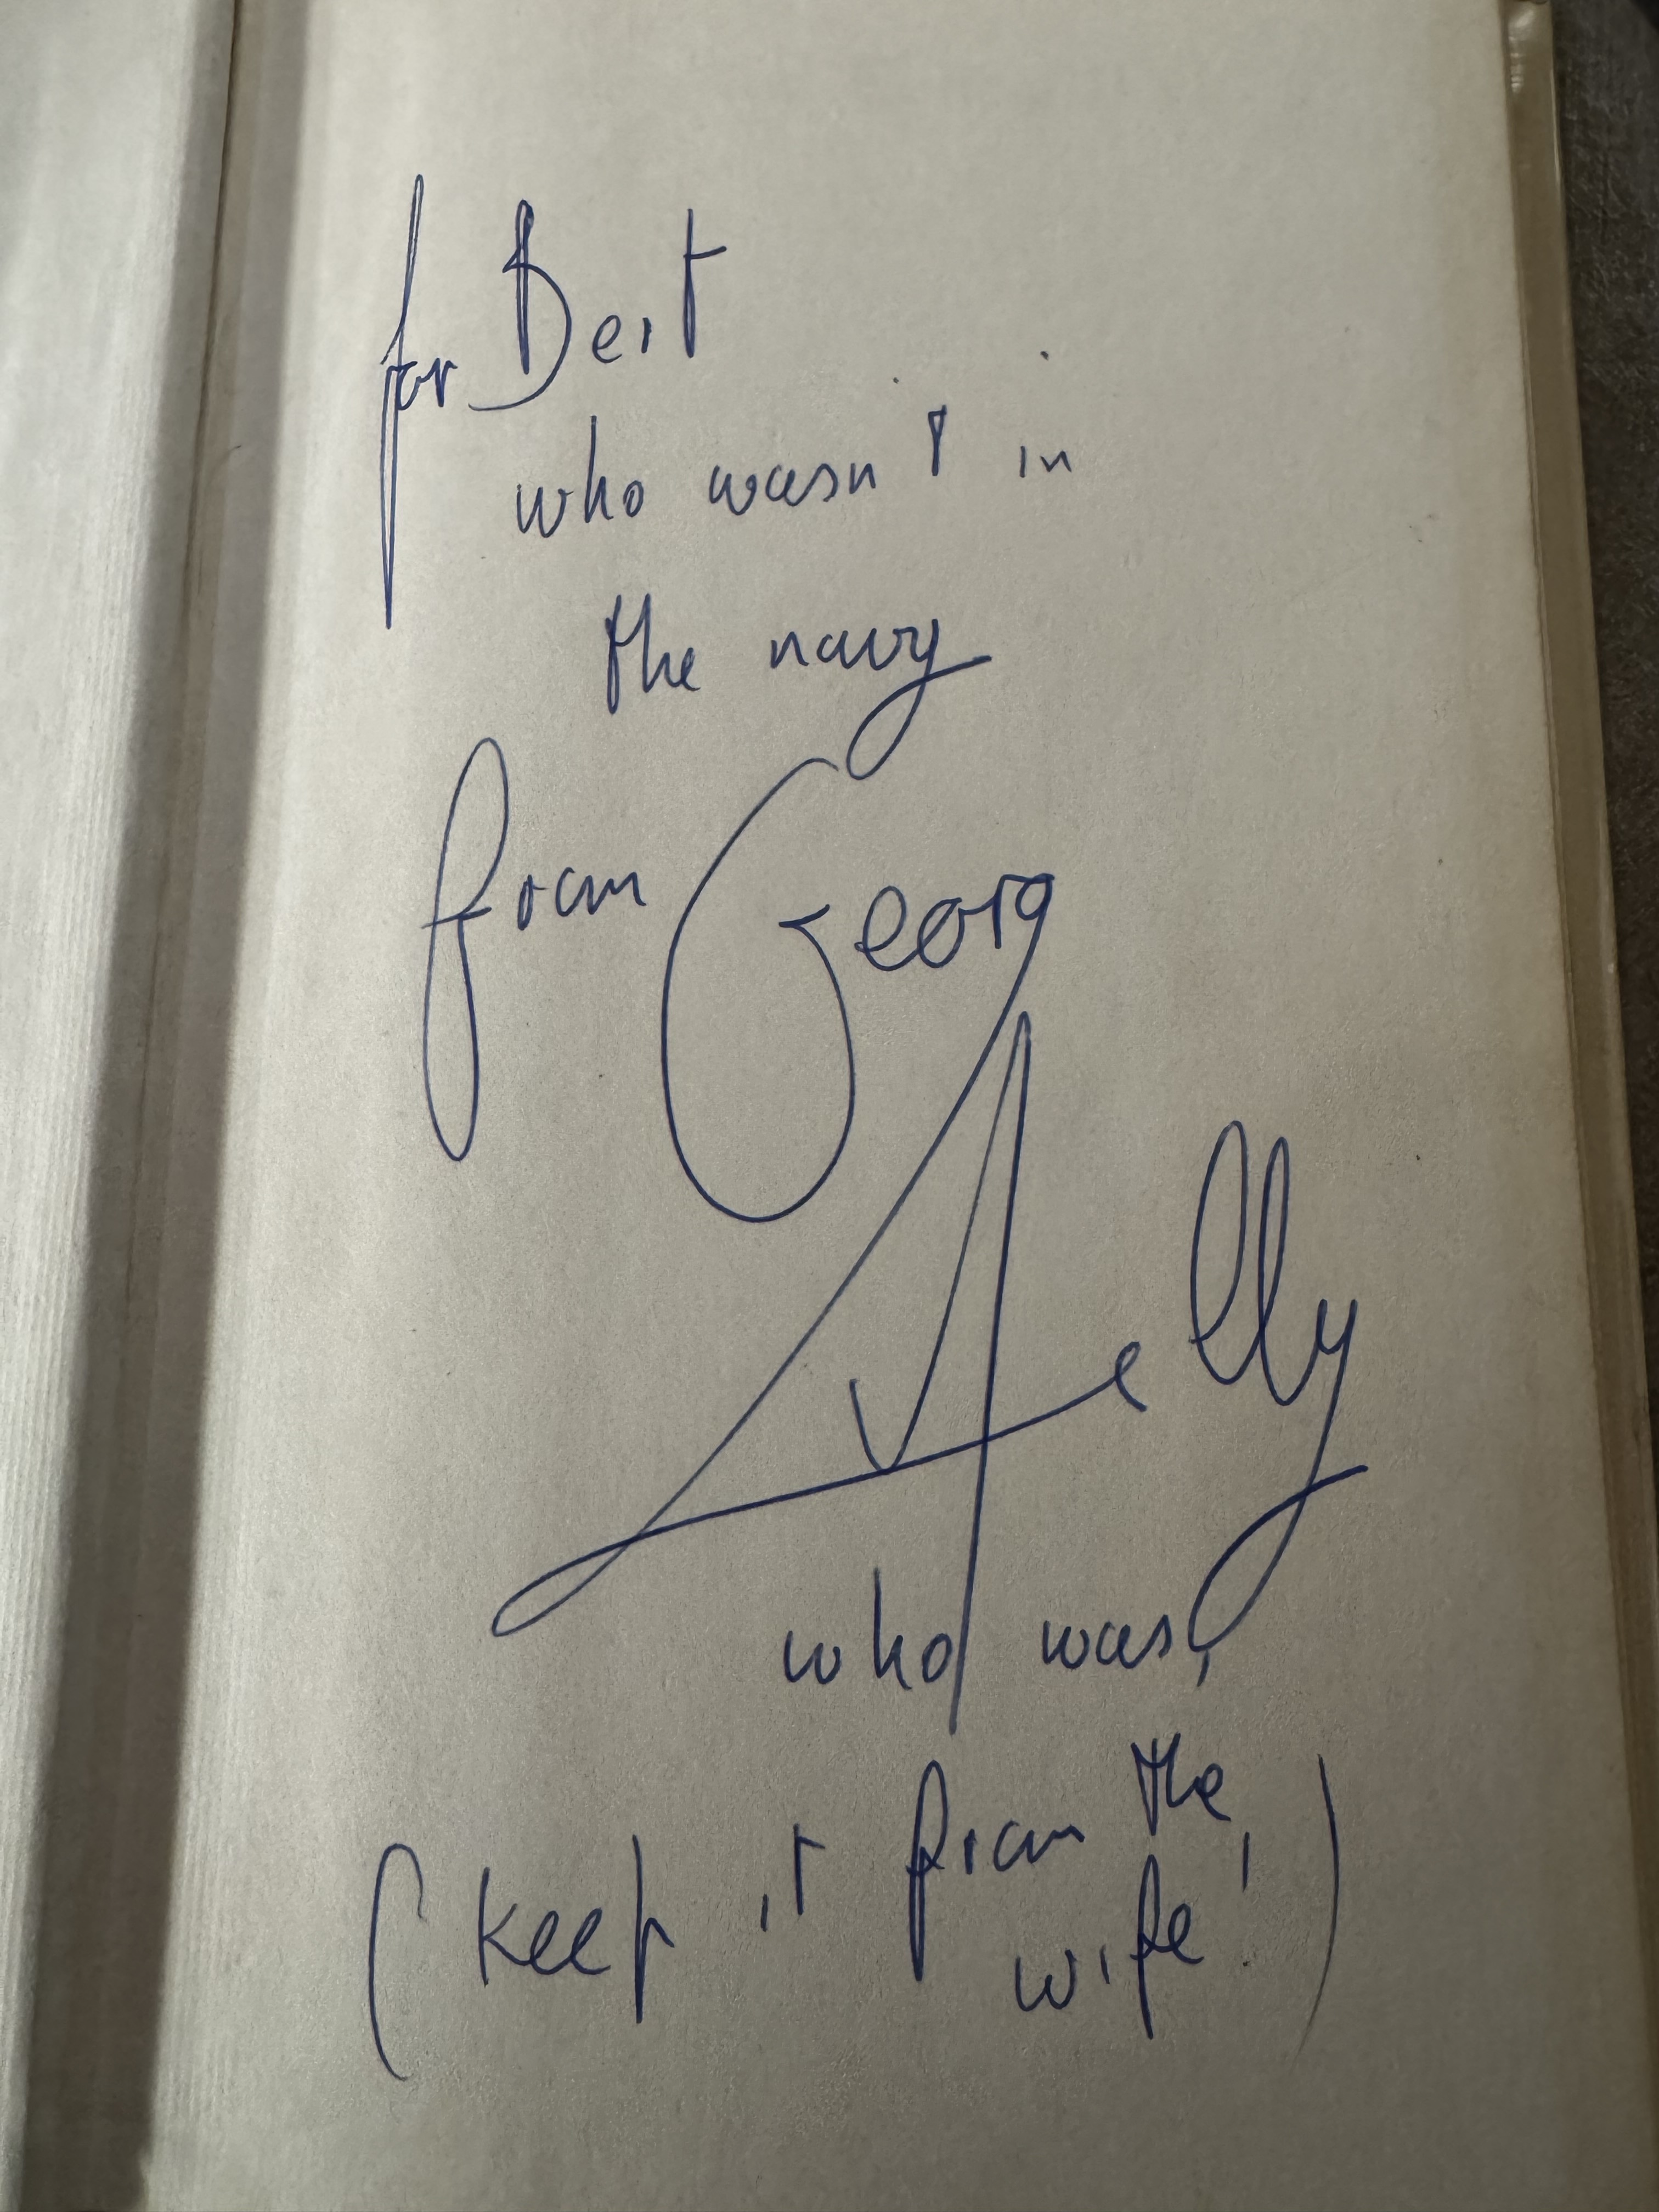 for Bert
who wasn't in
the navy
from Georg
Melly
who was,
(keep it from the
wife!)